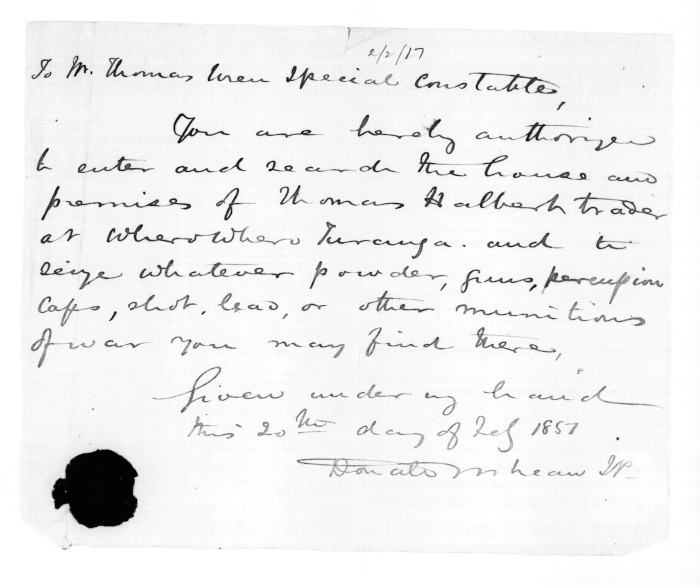 2/2/17
To Mr. Thomas Uren Special Constable,
You are hereby authorized
to enter and search the house and
premises of Thomas Halbert trader
at WheroWhero Turanga. and to
seize whatever powder, guns, percussion
caps, shot, lead, or other munitions
of war you may find there,
Given under my hand
this 20th day of Feby 1851
Donald McLean JP